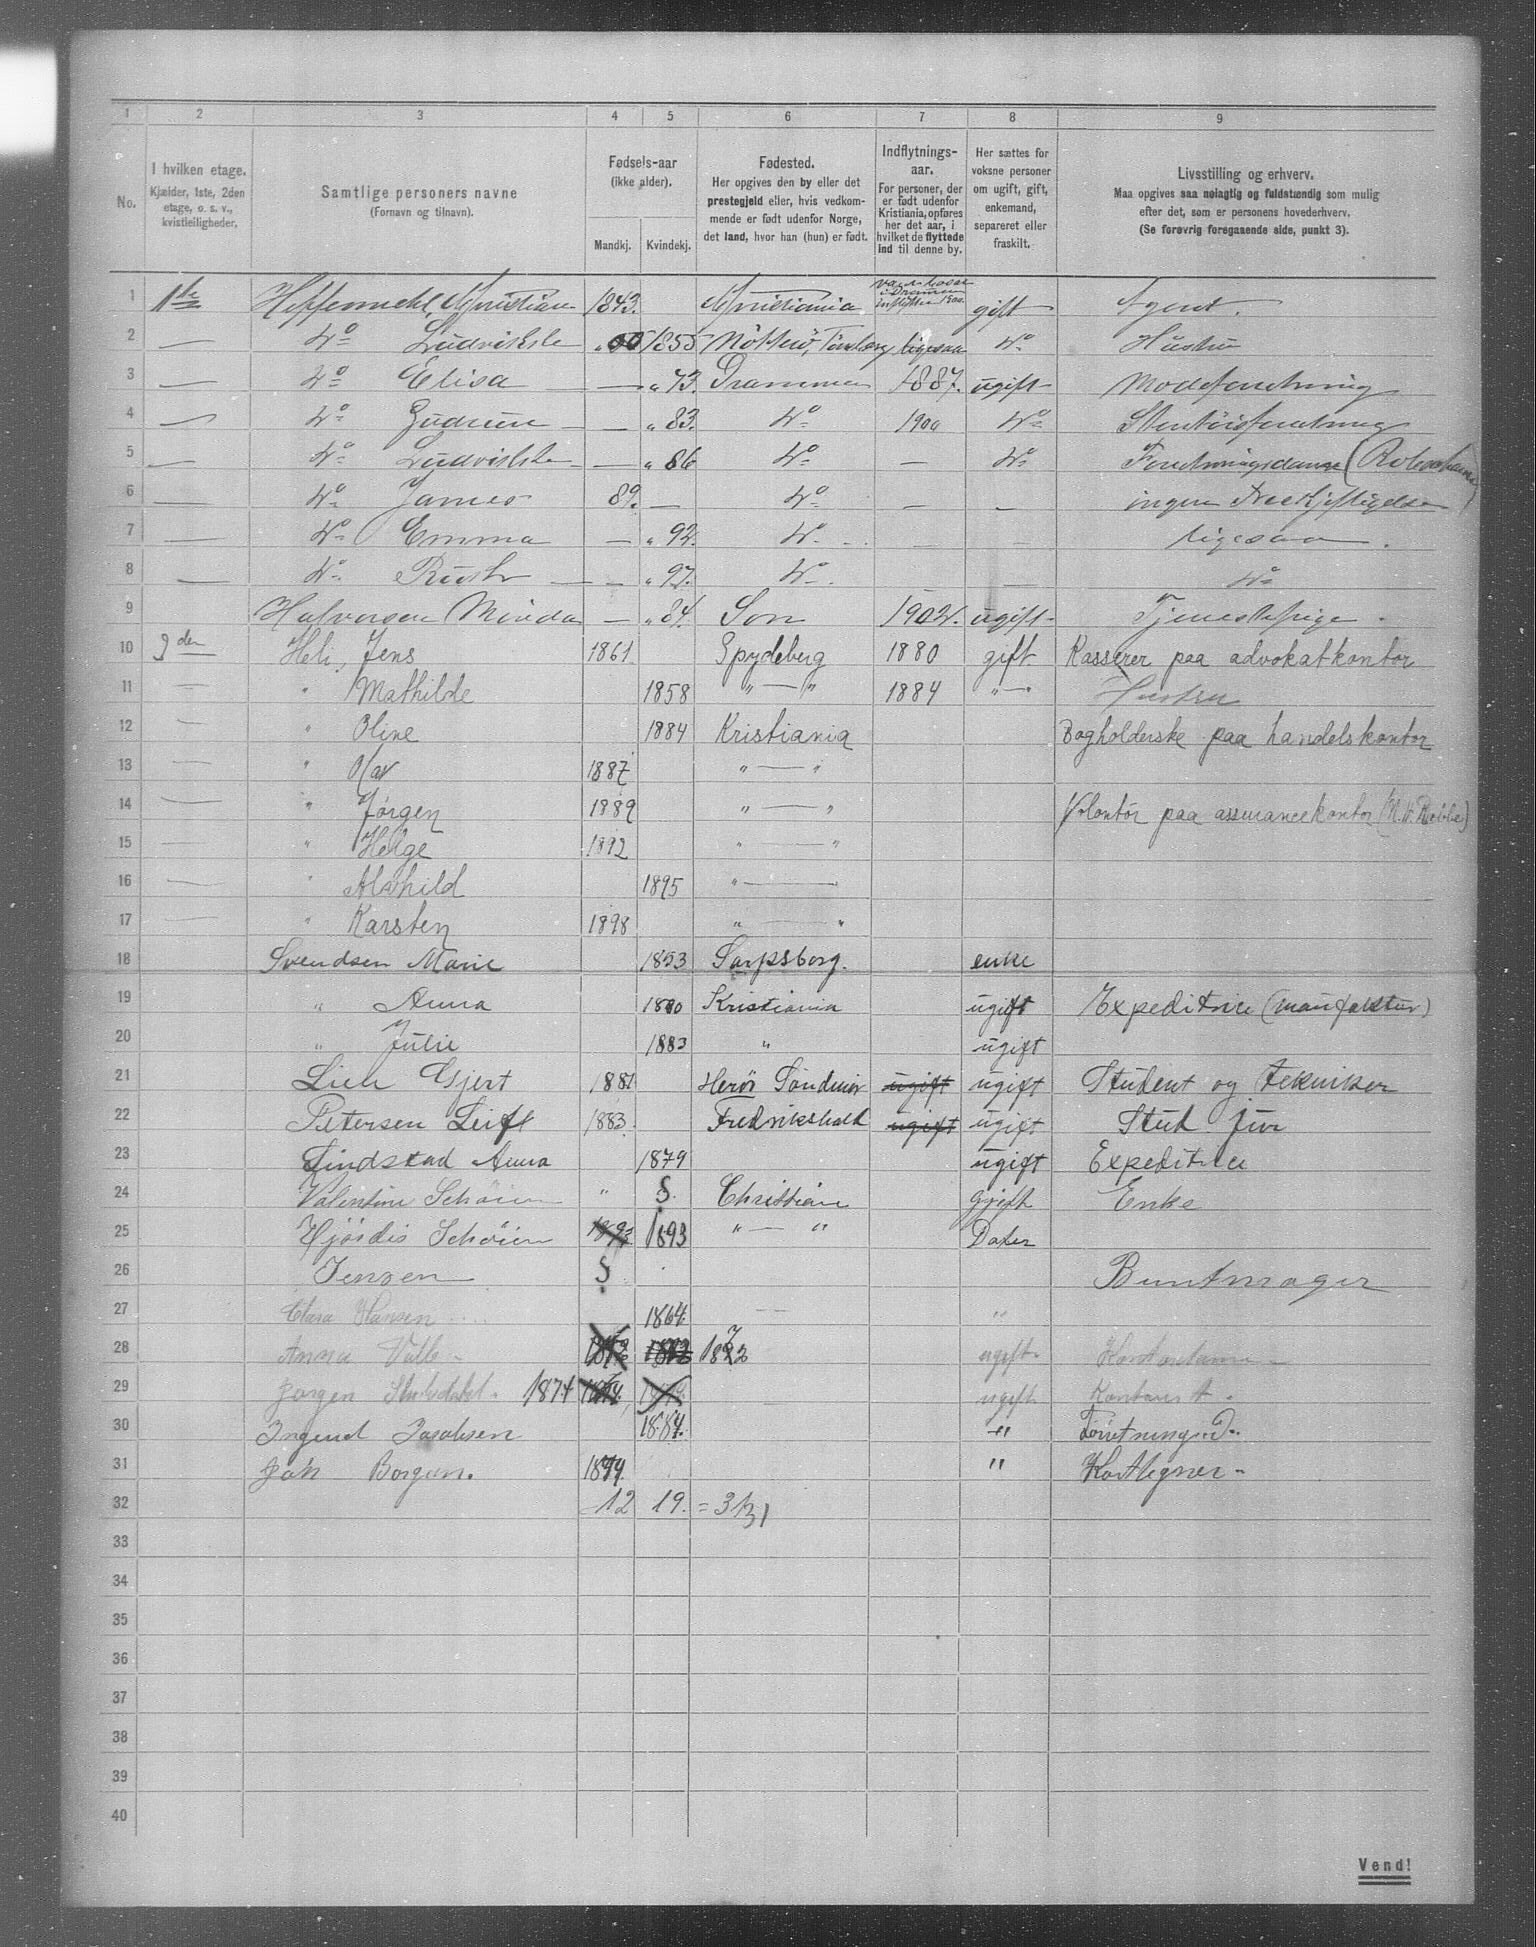 1 2 3 4 5 6 7 8 9
No.
I hvilken etage.
Kjælder, 1ste, 2den
etage, o. s. v.,
kvistleiligheder.
Samtlige personers navne
(Fornavn og tilnavn).
Fødsels-aar
(ikke alder).
Mandkj. Kvindekj.
Fødested.
Her opgives den by eller det
prestegjeld eller, hvis vedkom-
mende er født udenfor Norge,
det land, hvor han (hun) er født.
Indflytnings-
aar.
For personer, der
er født udenfor
Kristiania, opføres
her det aar, i
hvilket de flyttede
ind til denne by.
Her sættes for
voksne personer
om ugift, gift,
enkemand,
separeret eller
fraskilt.
Livsstilling og erhverv.
Maa opgives saa nøiagtig og fuldstændig som mulig
efter det, som er personens hovederhverv.
(Se forøvrig foregaaende side, punkt 3).
1 1ste Christian 1843. Christiania gift Agent.
2 — Do Ludvikke 1855 Nötterö, Tönsberg ligesaa Do Hustru
3 — Do Elisa — „73. Drammen 1887. ugift Modeforretning
4 — Do Gudrun — „83. Do 1900 Do
5 — Do Ludvikke — „86 Do — Do
6 — Do James 89. — Do — — ingen
7 — Do Emma — „92. Do — — ligesaa
8 — Do Ruth — „97. Do — Do
9 Halvorsen Minda — „84. Son 1902. ugift Tjenestepige
10 3den Heli, Jens 1861 Spydeberg 1880 gift Kasserer paa advokatkontor
11 — " Mathilde 1858 " — " 1884 " — " Hustru
12 — " Oline 1884 Kristiania Bogholderske paa handelskontor
13 — " Olav 1887 " — "
14 — " Jørgen 1889 " — " Volontør paa assurancekontor
15 — " Helge 1892 " — "
16 — " Alvhild 1895 " —
17 — " Karsten 1898 " — "
18 Svendsen Marie 1853 Sarpsborg. enke
19 " Anna 1880 Kristiania ugift Expeditrice (manufaktur)
20 " Julie 1883 " ugift
21 Lien Gjert 1881 Herö Söndmör ugift ugift Student og tekniker
22 Petersen Leif 1883. Fredrikshald ugift ugift Stud jur
23 Lindstad Anna 1879 ugift Expeditrice
24 Valentine Schöien " § Christian gjift Enke
25 Hjördis Schöien 1893 1893 " — " Dater
26 Jensen § Buntmager
27 Clara Hansen 1864. — "
28 Anna 1872 ugift
29 Jørgen 1874 ugift
30 Jacobsen 1884. "
31 Borgen. 1874 "
32 12 19. = 31
33
34
35
36
37
38
39
40
Vend!